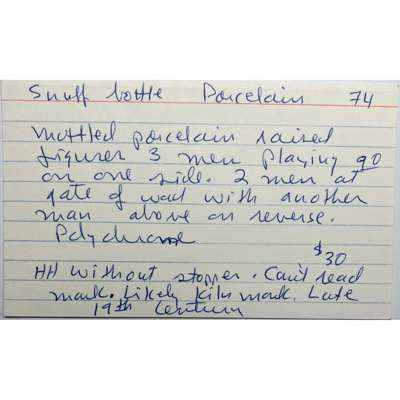 Snuff bottle Porcelain 74
Mottled porcelain raised
figures 3 men playing go
on one side. 2 men at
gate of wall with another
man above on reverse.
Polychrome
$30
HH without stopper. Can't read
mark. Likely kiln mark. Late
19th Century